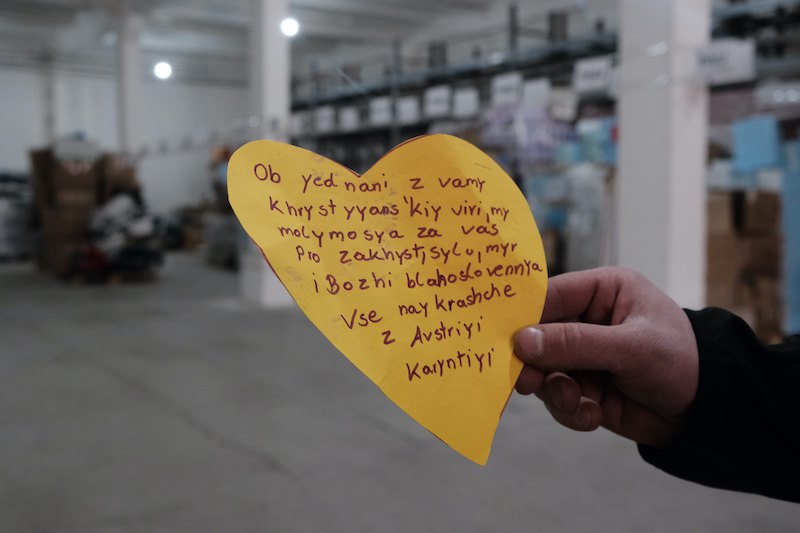 Ob yednani z vamy
Khrystyyans'kiy viri, my
molymosya za vas
Pro zakhyst, sylu, myr
i Bozhi blahoslovennya
Vse naykrashche
z Avstriyi
Karyntiyi